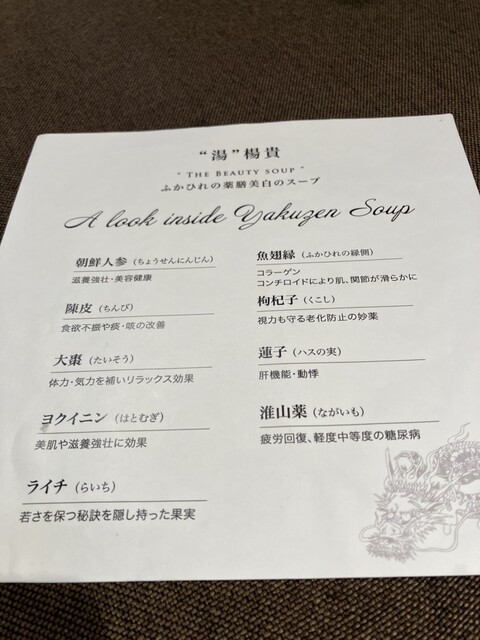 “湯”楊貴
" THE BEAUTY SOUP "
ふかひれの薬膳美白のスープ
A look inside Yakuzen Soup
朝鮮人参（ちょうせんにんじん）
滋養強壮・美容健康
陳皮（ちんぴ）
食欲不振や痰・咳の改善
大棗（たいそう）
体力・気力を補いリラックス効果
ヨクイニン（はとむぎ）
美肌や滋養強壮に効果
ライチ（らいち）
若さを保つ秘訣を隠し持った果実
魚翅縁（ふかひれの縁側）
コラーゲン
コンチロイドにより肌、関節が滑らかに
枸杞子（くこし）
視力も守る老化防止の妙薬
蓮子（ハスの実）
肝機能・動悸
淮山薬（ながいも）
疲労回復、軽度中等度の糖尿病